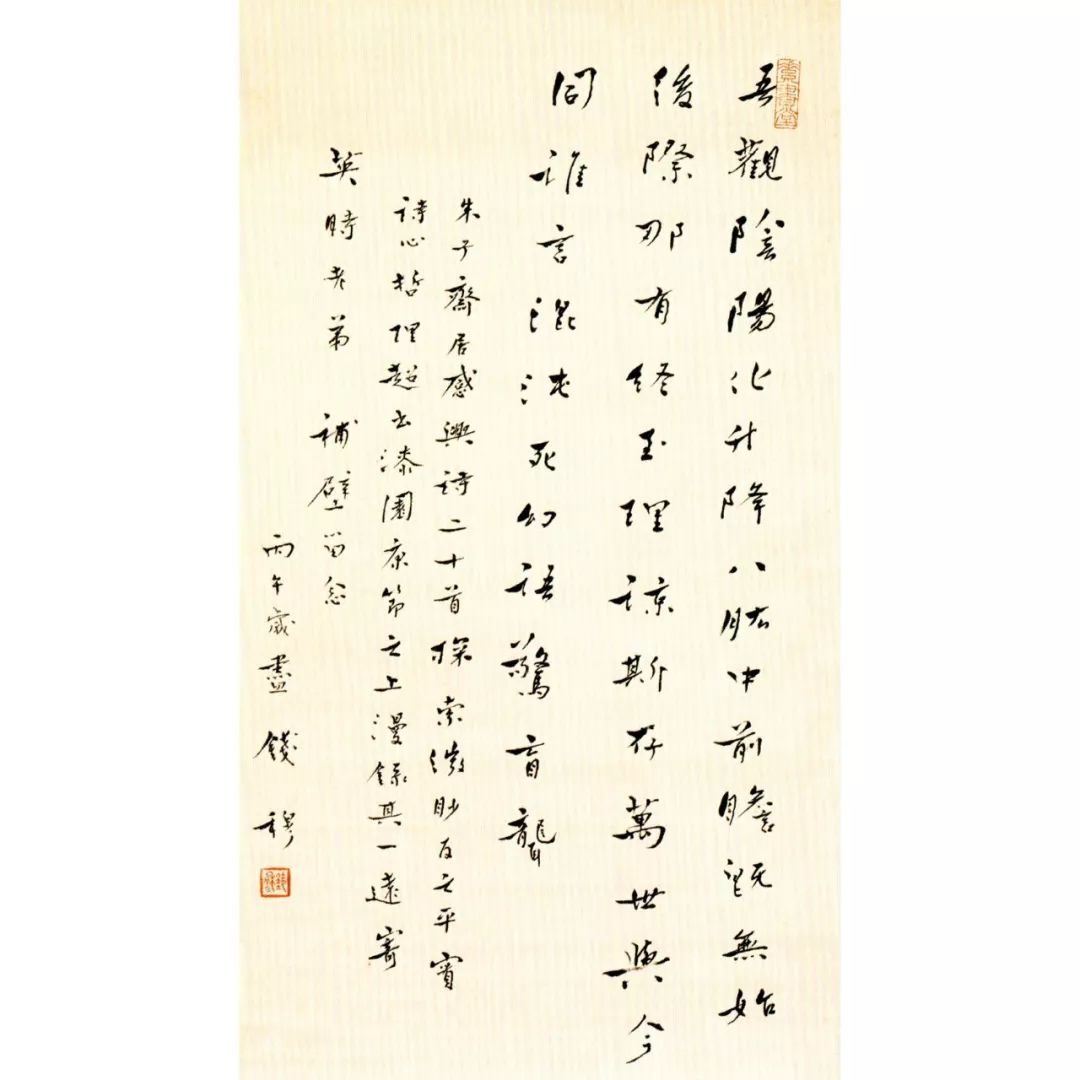 吾觀陰陽化升降八肱中前瞻旣無始
後際那有終至理諒斯存萬世與今
同誰言混沌死幻語驚盲聾
朱子齋居感興詩二十首探索微眇反之平實
詩心哲理超出漆園康節之上漫錄其一遠寄
英時老弟 補壁留念
丙午歲盡 錢穆